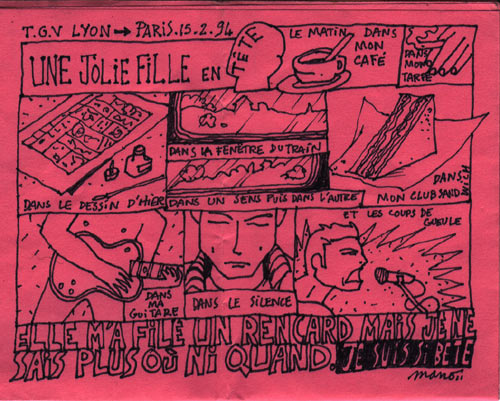 T.G.V LYON → PARIS.15.2.94
UNE JOLIE FILLE EN
TÊTE
LE MATIN DANS
MON
CAFÉ
DANS MON
TARFÉ
DANS LE DESSIN D'HIER
DANS LA FENÊTRE DU TRAIN
DANS UN SENS PUIS DANS L'AUTRE
DANS
MON CLUB SAND
WICH
DANS
MA
GUITARE
DANS LE SILENCE
ET LES COUPS DE
GUEULE
ELLE M'A FILÉ UN RENCARD MAIS JE NE
SAIS PLUS OÙ NI QUAND. JE SUIS SI BÊTE